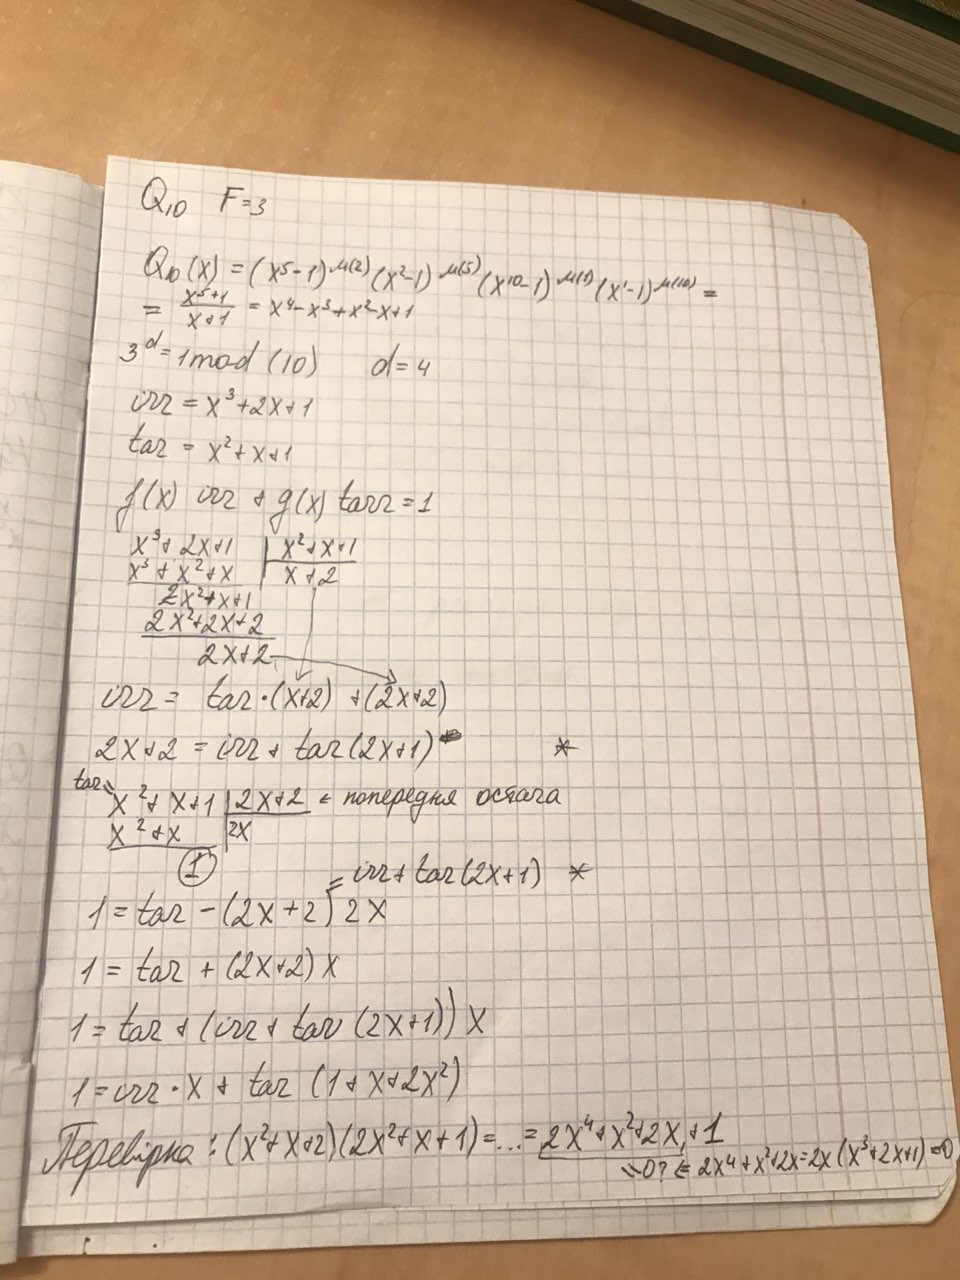 Q₁₀ F=3
Q₁₀(x) = (x⁵-1)^μ(2) (x²-1)^μ(5) (x¹⁰-1)^μ(1) (x¹-1)^μ(10) =
= (x⁵+1)/(x+1) = x⁴-x³+x²-x+1
3^d = 1 mod (10) d=4
irr = x³+2x+1
tar = x²+x+1
f(x) irr + g(x) tarr = 1
x³+2x+1 | x²+x+1
x³+x²+x | x+2
2x²+x+1
2x²+2x+2
2x+2
irr = tar·(x+2) +(2x+2)
2x+2 = irr + tar(2x+1) *
tar=
x²+x+1 | 2x+2 ← попередня остача
x²+x | 2x
1
= irr+tar(2x+1) *
1 = tar -(2x+2) 2x
1 = tar + (2x+2) x
1 = tar + (irr + tar (2x+1)) x
1 = irr·x + tar (1+x+2x²)
Перевірка: (x²+x+2)(2x²+x+1)=...=2x⁴+x²+2x+1
=0? ⇐ 2x⁴+x²+2x=2x(x³+2x+1)=0